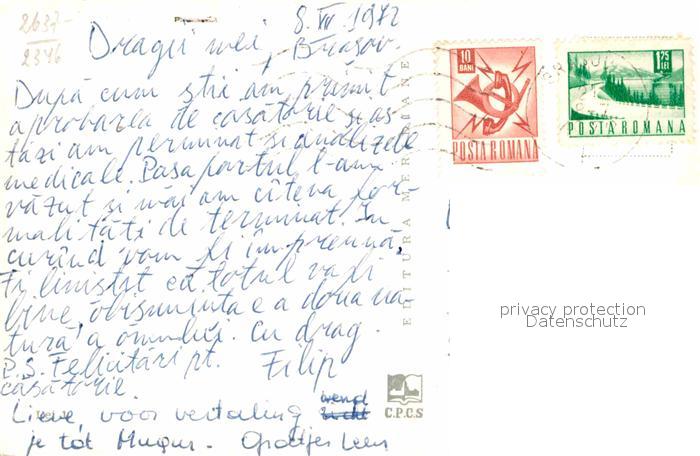 2637-
2346
8. VII 1972
Brașov.
Dragii mei,
După cum știi am primit
aprobarea de casătorie și as-
tăzi am terminat și analizele
medicale. Pasaportul l-am
văzut și mai am cîteva for-
malități de terminat. În
curînd vom fi împreună.
Fi liniștit că totul va fi
bine, obișnuința e a doua na-
tură a omului. Cu drag.
Filip
P.S. Felicitări pt.
casătorie.
Lieve, voor vertaling wend
je tot Mugur. Groetjes Leen
EDITURA MERIDIANE
C.P.C.S
10
BANI
POSTA ROMANA
1,25
LEI
POSTA ROMANA
privacy protection
Datenschutz